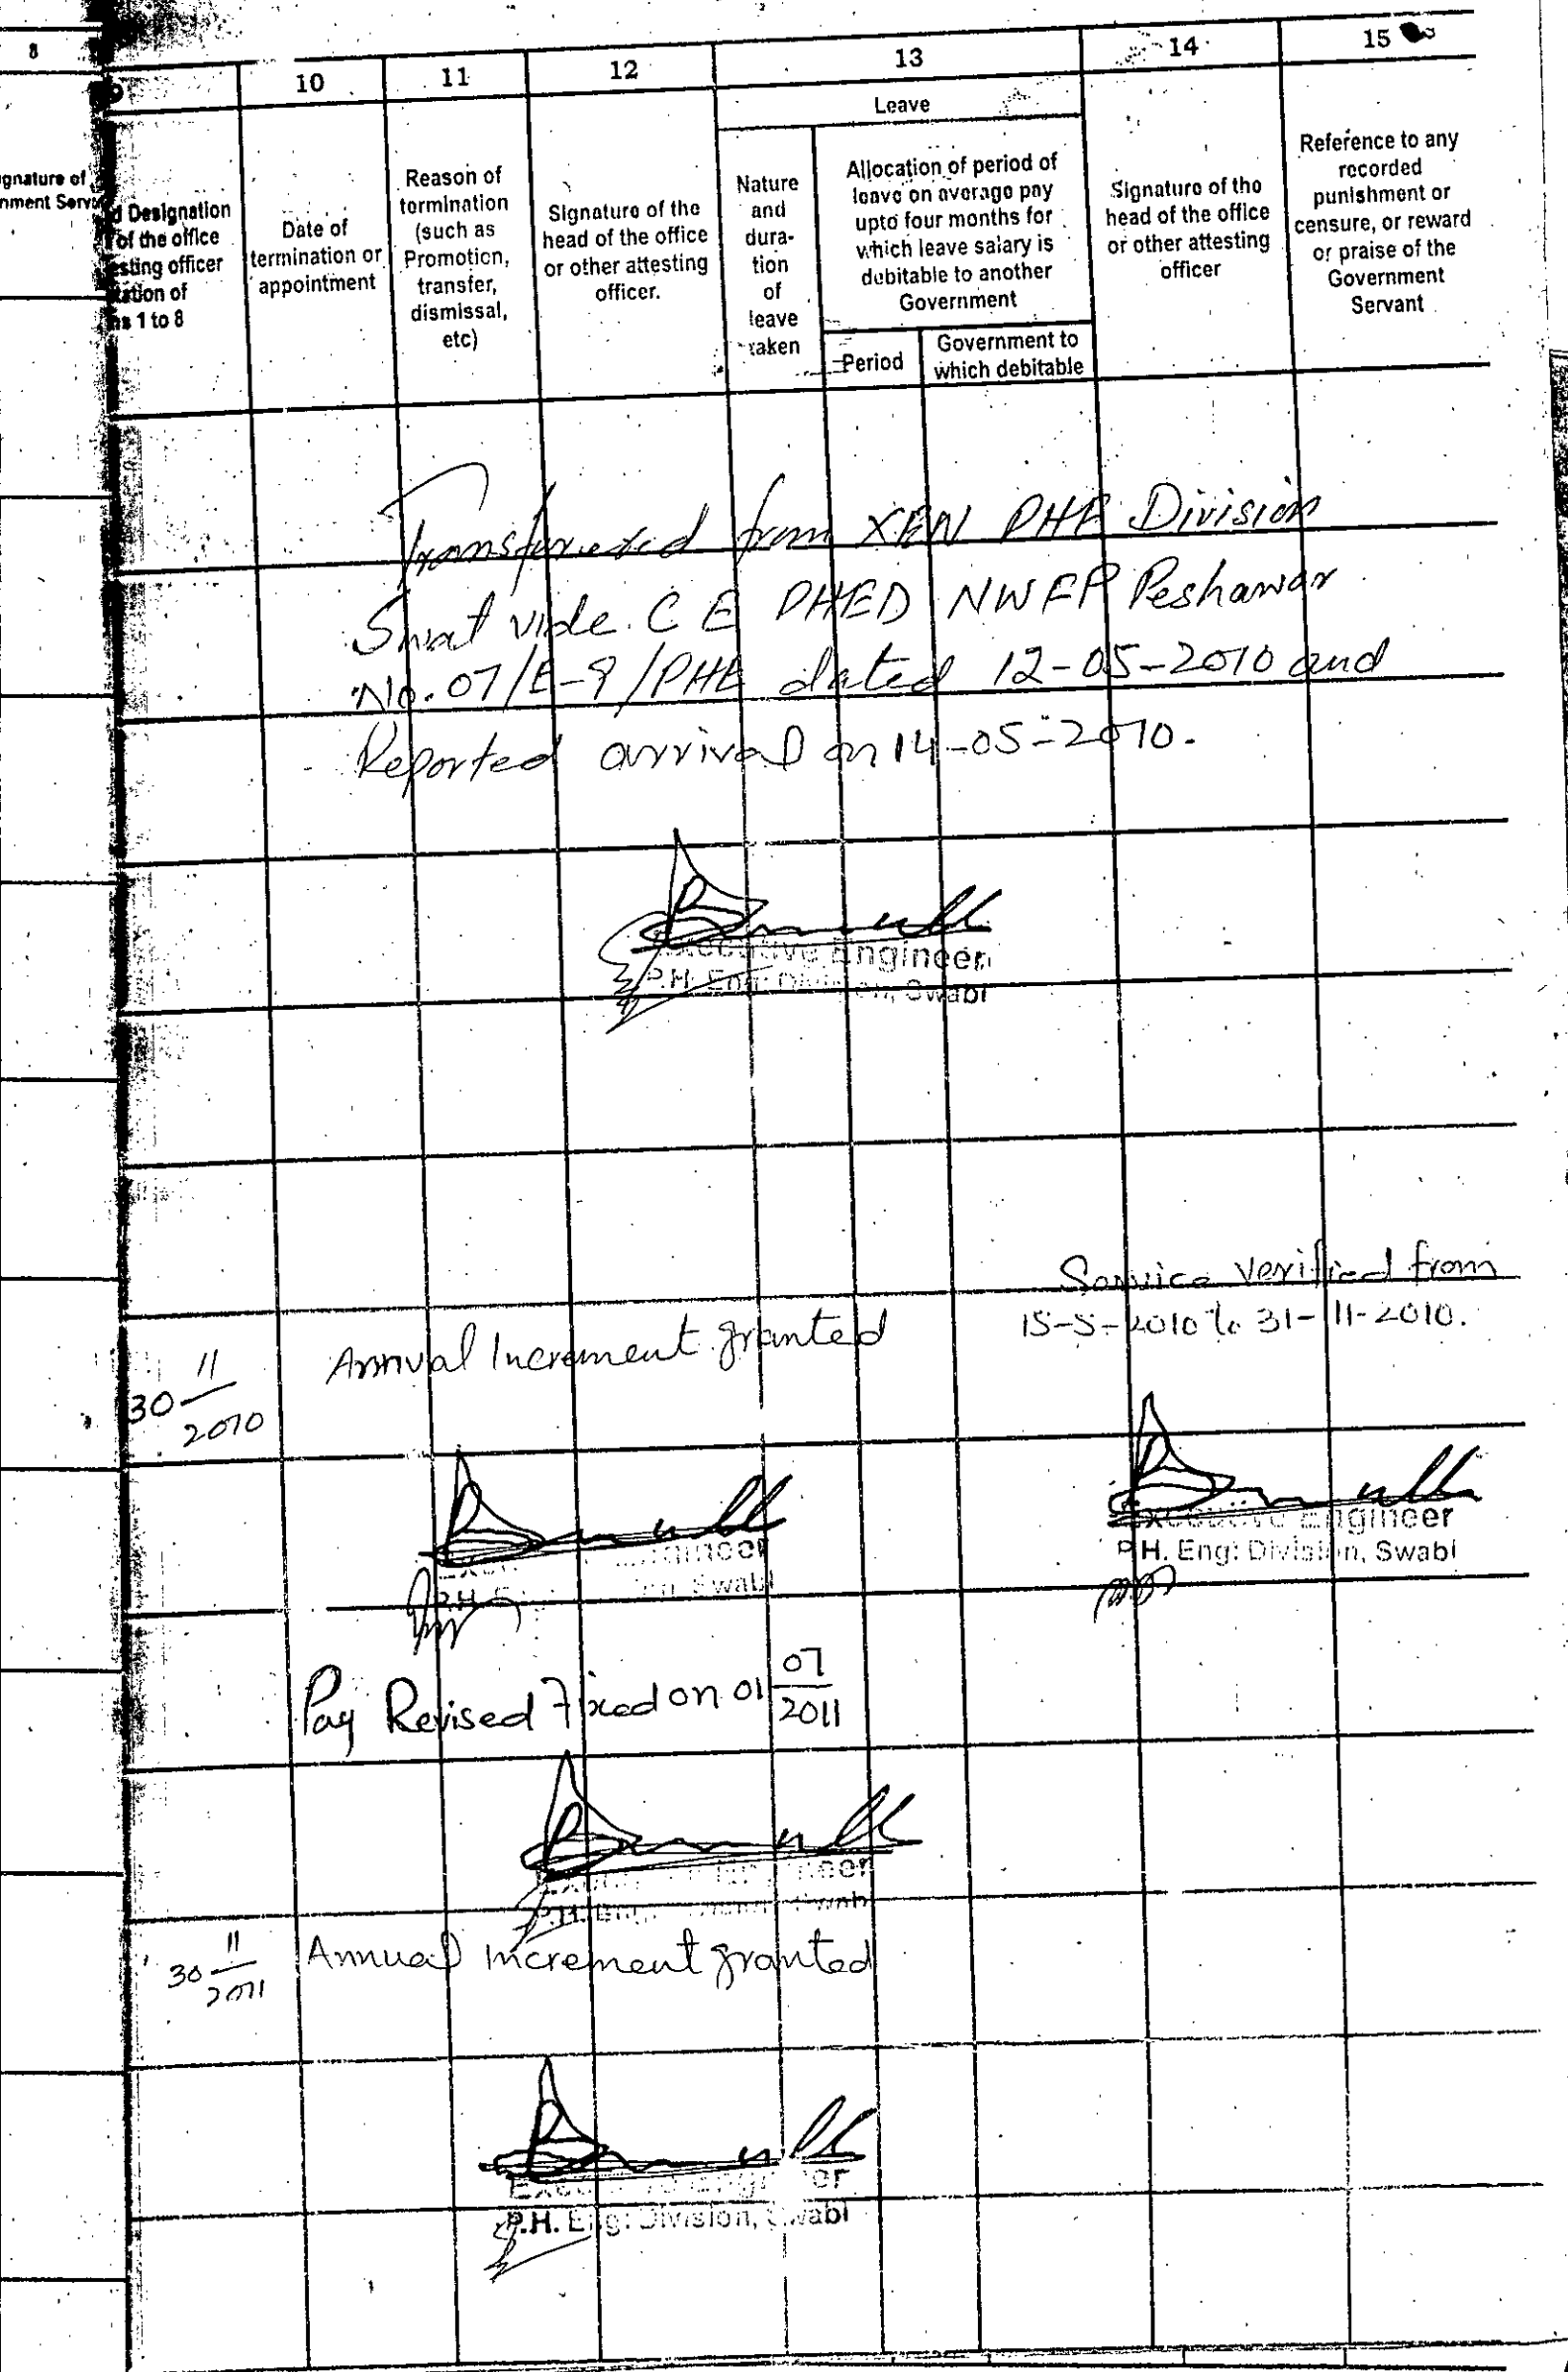 8
10
11
12
13
14
15
Leave
gnature of
nment Serv
d Designation
of the office
esting officer
tation of
ns 1 to 8
Date of
termination or
appointment
Reason of
termination
(such as
Promotion,
transfer,
dismissal,
etc)
Signature of the
head of the office
or other attesting
officer.
Nature
and
dura-
tion
of
leave
taken
Allocation of period of
leave on average pay
upto four months for
which leave salary is
debitable to another
Government
Period
Government to
which debitable
Signature of the
head of the office
or other attesting
officer
Reference to any
recorded
punishment or
censure, or reward
or praise of the
Government
Servant
Transferred from XEN PHE Division
Swat vide. C E PHED NWFP Peshawar
No. 07/E-9/PHE dated 12-05-2010 and
Reported arrival on 14-05-2010.
Executive Engineer
P.H. Eng: Division, Swabi
Service verified from
15-5-2010 to 31-11-2010.
30 11/2010
Annual Increment granted
Engineer
P.H. E Swabi
Executive Engineer
P.H. Eng: Division, Swabi
Pay Revised Fixed on 01 07/2011
P.H. Eng: Swabi
30 11/2011
Annual increment granted
Executive Engineer
P.H. Eng: Division, Swabi